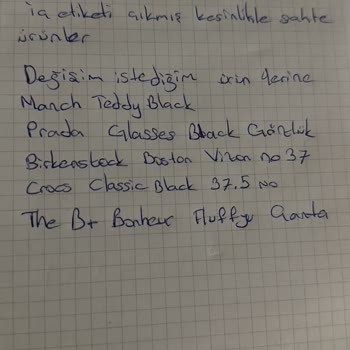 iç etiketi çıkmış kesinlikle sahte
ürünler
Değişim istediğim ürün yerine
Manch Teddy Black
Prada Glasses Black Gözlük
Birkenstock Boston Vizon no 37
Crocs Classic Black 37.5 No
The B+ Bonheur Fluffy Çanta